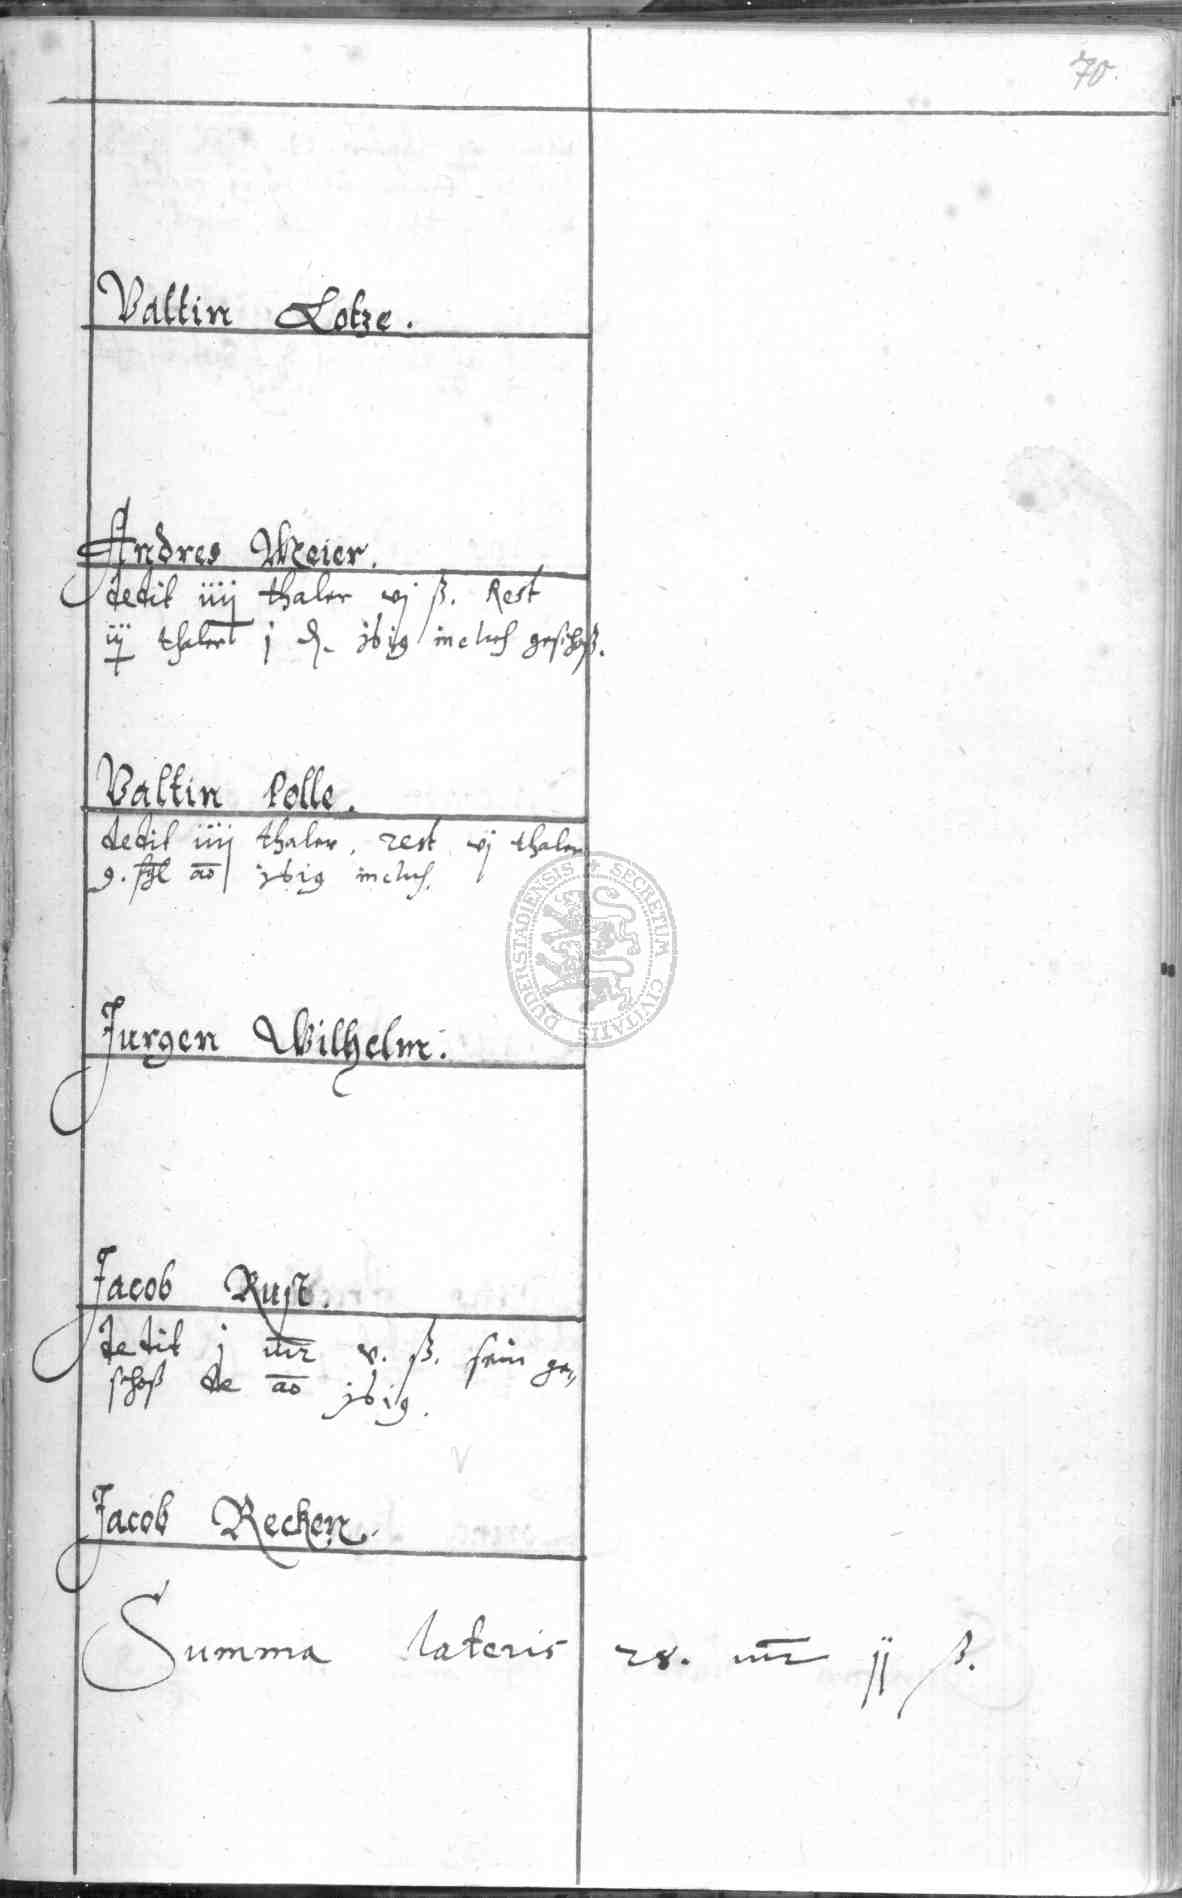 70.
Valtin Lotze.
Andres Meier.
dedit iiij thaler vj ß. Rest
thaler j inclus geschoß.
Valtin Polle.
dedit iiij thaler. rest vj thaler
9. ao inclus.
DUDERSTADIENSIS SECRETUM CIVITATIS
Jurgen Wilhelm.
Jacob Rust.
dedit j mr v. ß. sein ge„
schoß de ao
Jacob Recken.
Summa lateris 28. mr ij ß.